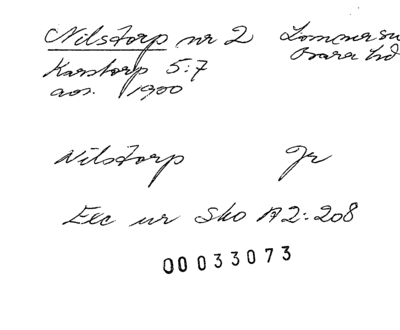 Nilstorp nr 2 Lommarsn
Karstorp 5:7 Bara hd
aos. 1900
Nilstorp Jr
Exc ur Sko A2:208
00033073